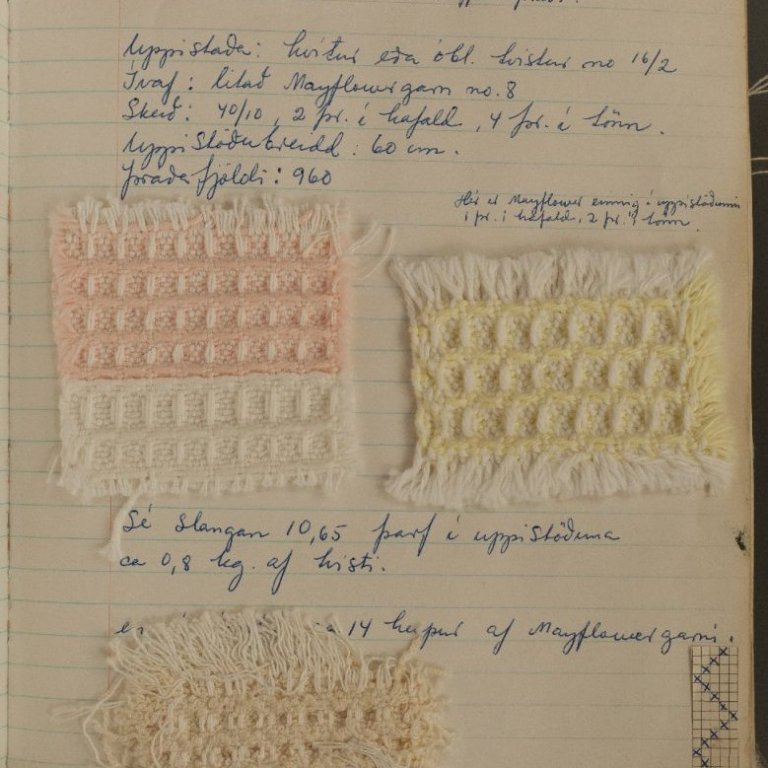 Uppistaða: hvítur eða óbl. tvistur no 16/2
Ívaf: litað Mayflowergarn no. 8
Skeið: 40/10, 2 þr. í hafald, 4 þr. í tönn.
Uppistöðubreidd: 60 cm.
Þráðafjöldi: 960
Hér er Mayflower einnig í uppistöðunni
1 þr. í hafaldi, 2 þr. í tönn.
Sé slangan 10,65 þarf í uppistöðuna
ca 0,8 kg. af tvisti.
14 hespur af Mayflowergarni.